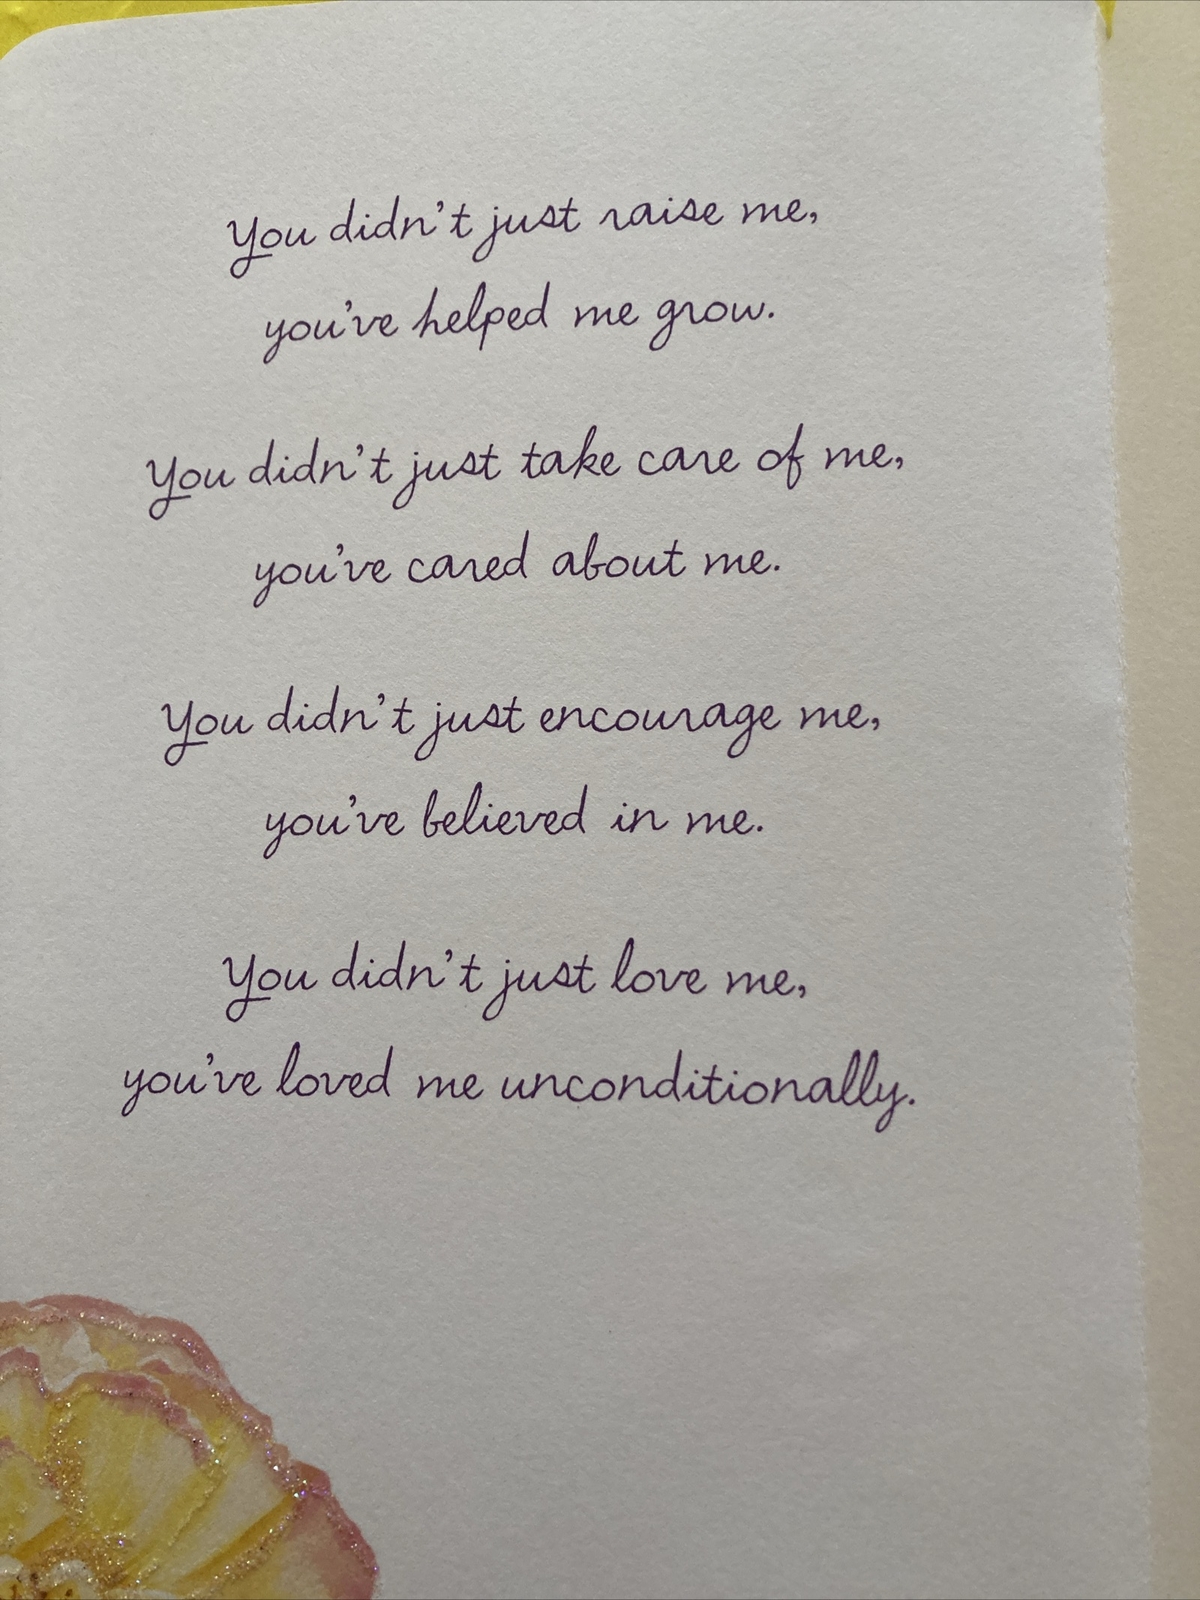 You didn't just raise me,
you've helped me grow.
You didn't just take care of me,
you've cared about me.
You didn't just encourage me,
you've believed in me.
You didn't just love me,
you've loved me unconditionally.